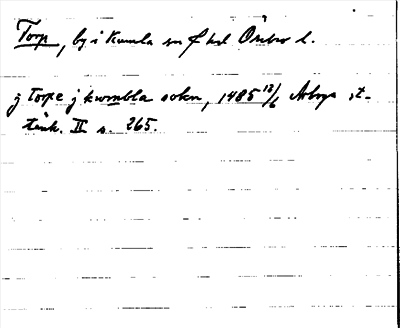 Torp, by i Kumla sn Ö hd Örebro l.
j torpe j kwmbla sokn, 1485 13/6 Arboga st-
tänk. II s. 265.